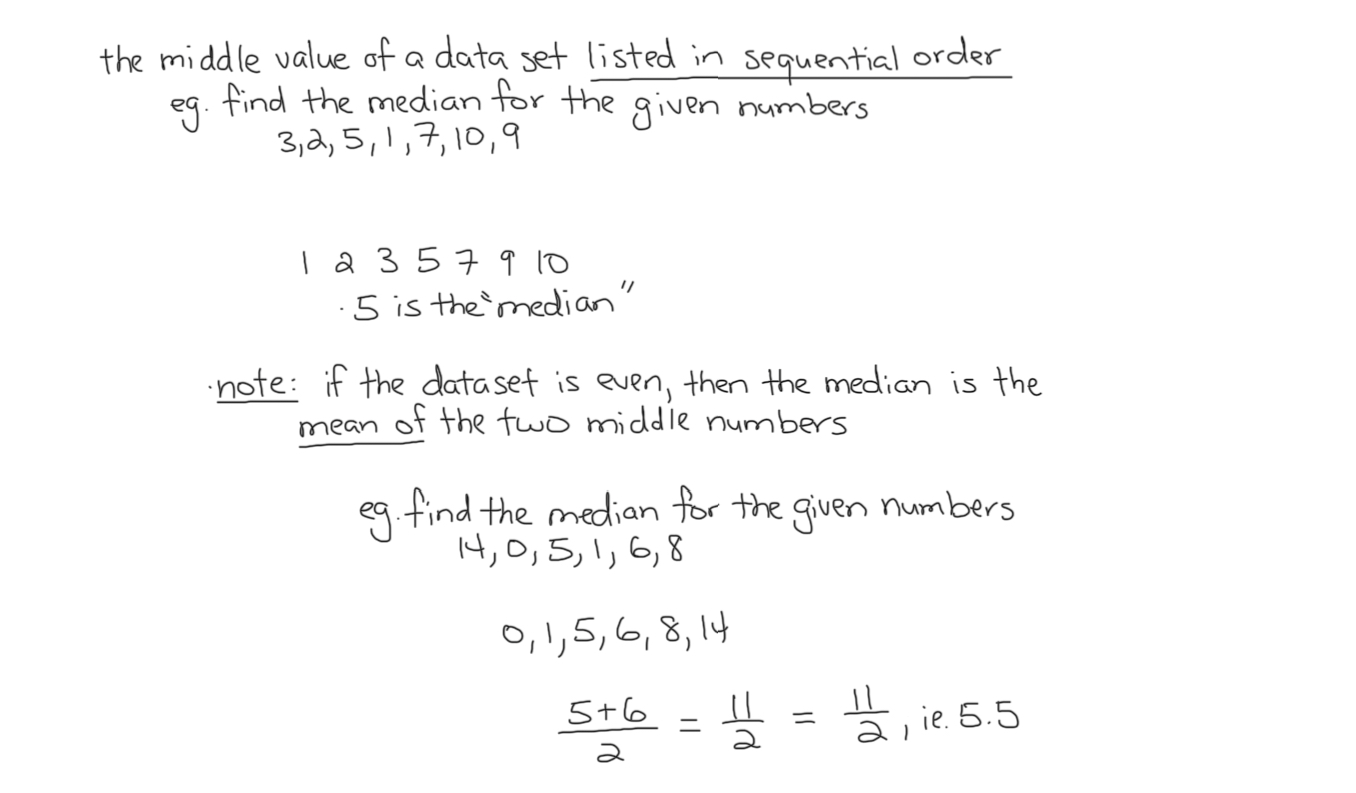 the middle value of a data set listed in sequential order
eg. find the median for the given numbers
3,2,5,1,7,10,9
1 2 3 5 7 9 10
·5 is the "median"
·note: if the dataset is even, then the median is the
mean of the two middle numbers
eg. find the median for the given numbers
14,0,5,1,6,8
0,1,5,6,8,14
5+6/2 = 11/2 = 11/2, ie. 5.5